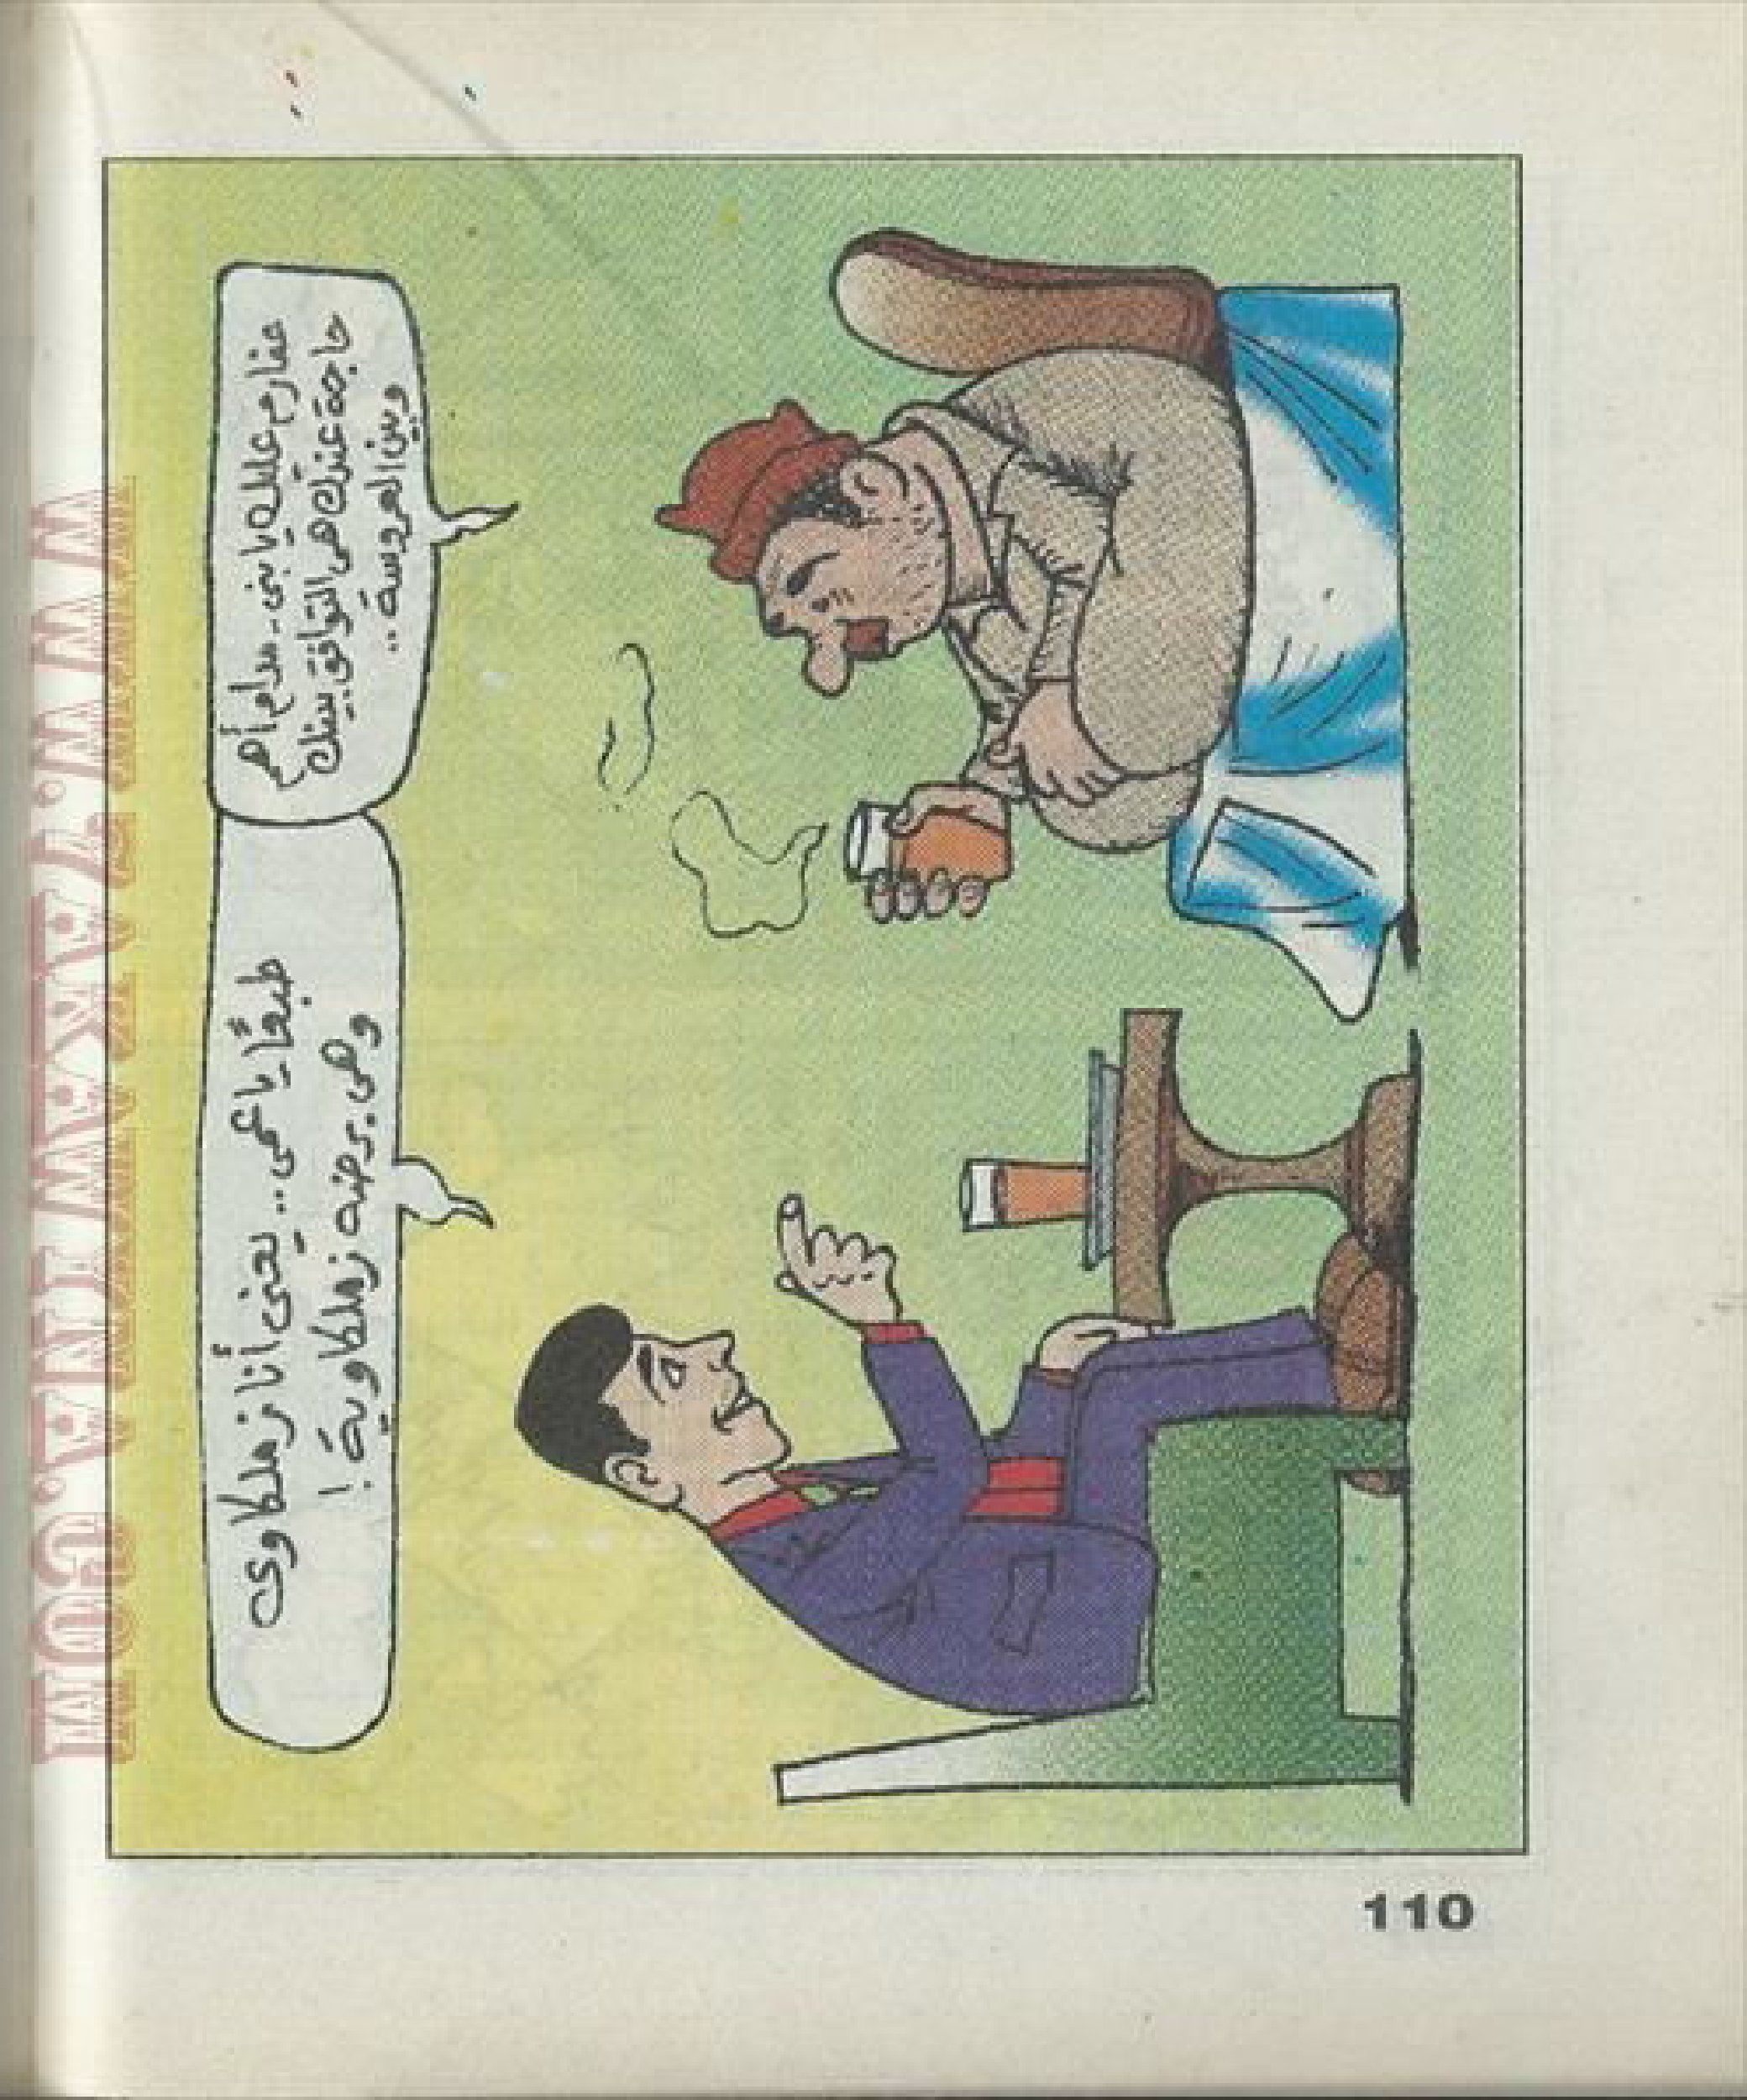 عفارم عليك يا بنى.. مدام أهم
حاجة عندك هى التوافق بينك
وبين العروسة..
طبعًا يا عمى.. يعنى أنا زملكاوى
وهى برضه زملكاوية!
110
WWW.7AKAWINA.COM